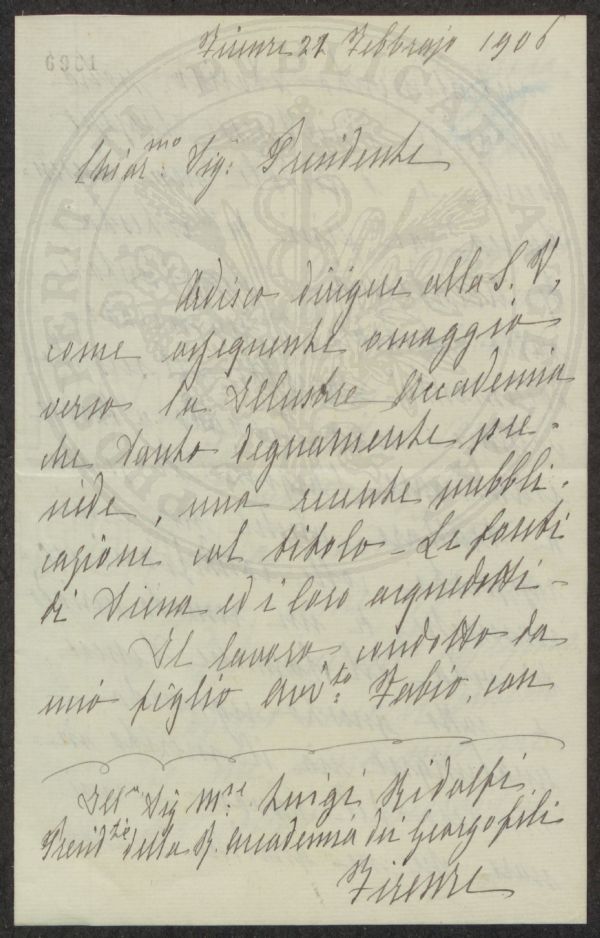 Firenze 22 Febbrajo 1906
Chiar.mo Sig: Presidente
Ardisco dirigere alla S. V.
come ossequente omaggio
verso la Illustre Accademia
che tanto degnamente pre-
siede, una recente pubbli-
cazione col titolo - Le fonti
di Siena ed i loro acquedotti -
Il lavoro condotto da
mio figlio Avv.to Fabio, con
Ill. Sig M.se Luigi Ridolfi
Presid.te della R. Accademia dei Georgofili
Firenze